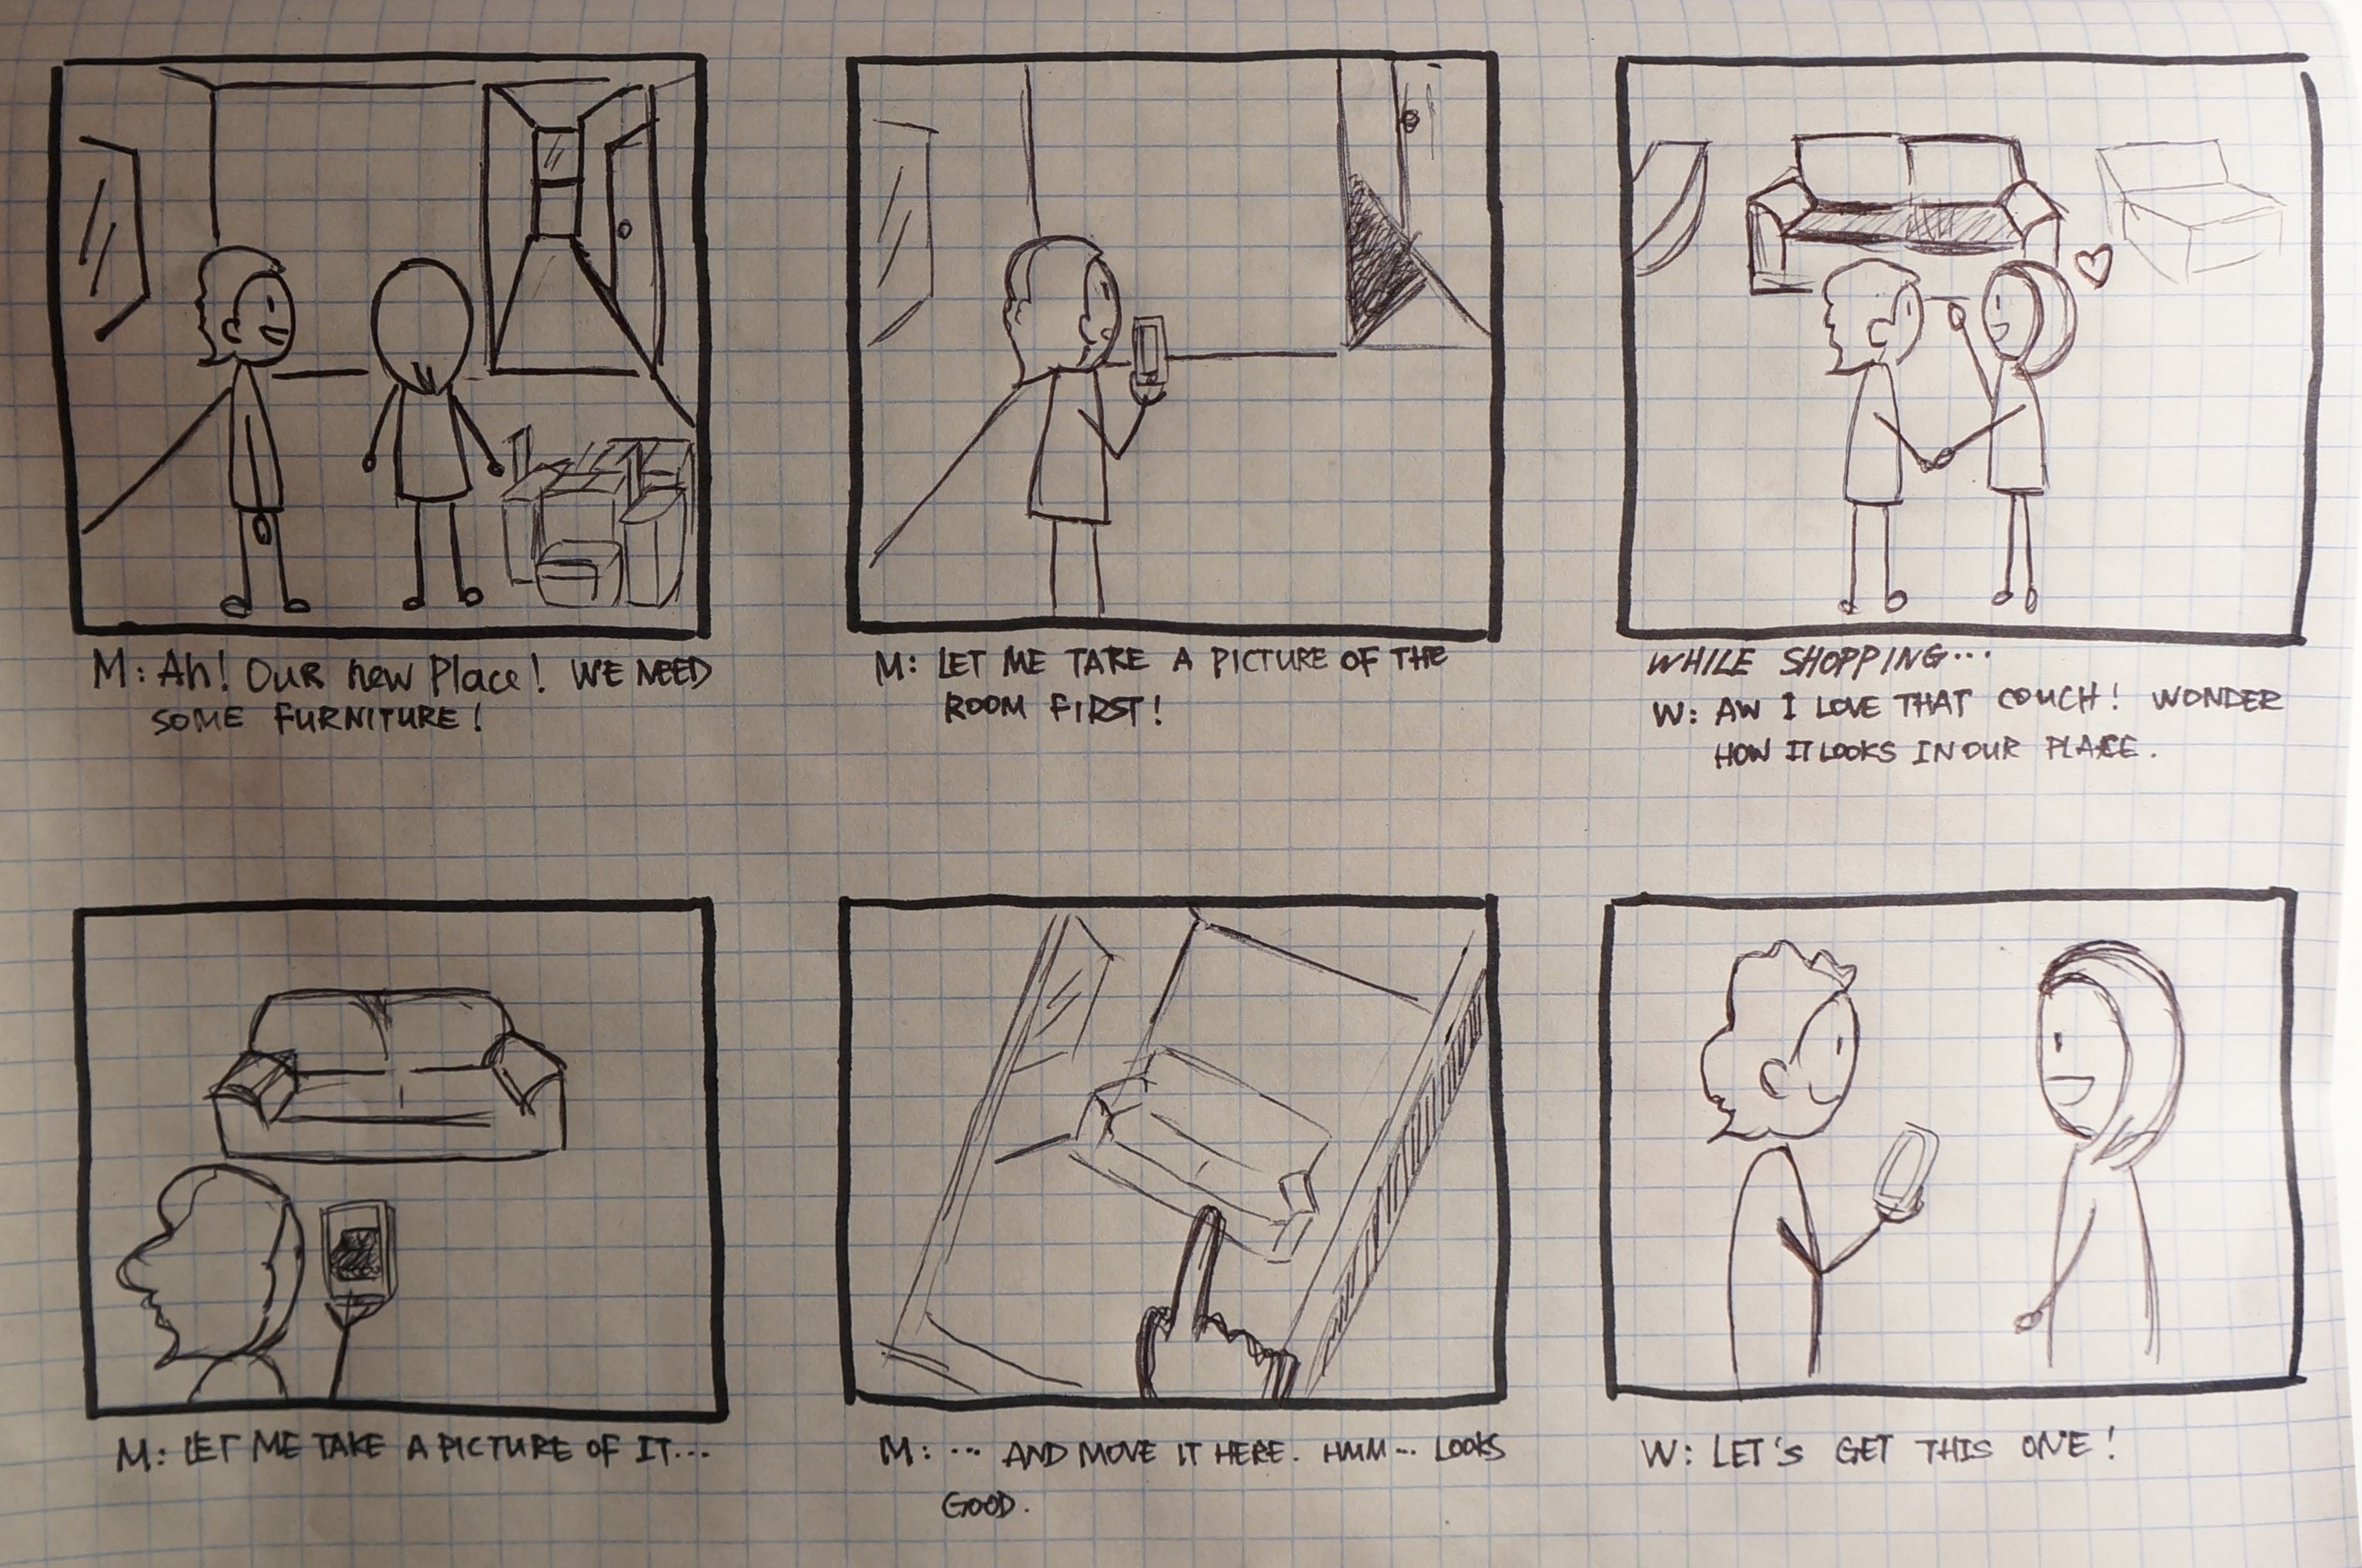 M: Ah! Our new Place! WE NEED
SOME FURNITURE!
M: LET ME TAKE A PICTURE OF THE
ROOM FIRST!
WHILE SHOPPING...
W: AW I LOVE THAT COUCH! WONDER
HOW IT LOOKS IN OUR PLACE.
M: LET ME TAKE A PICTURE OF IT...
M: ... AND MOVE IT HERE. HMM... LOOKS
GOOD.
W: LET'S GET THIS ONE!